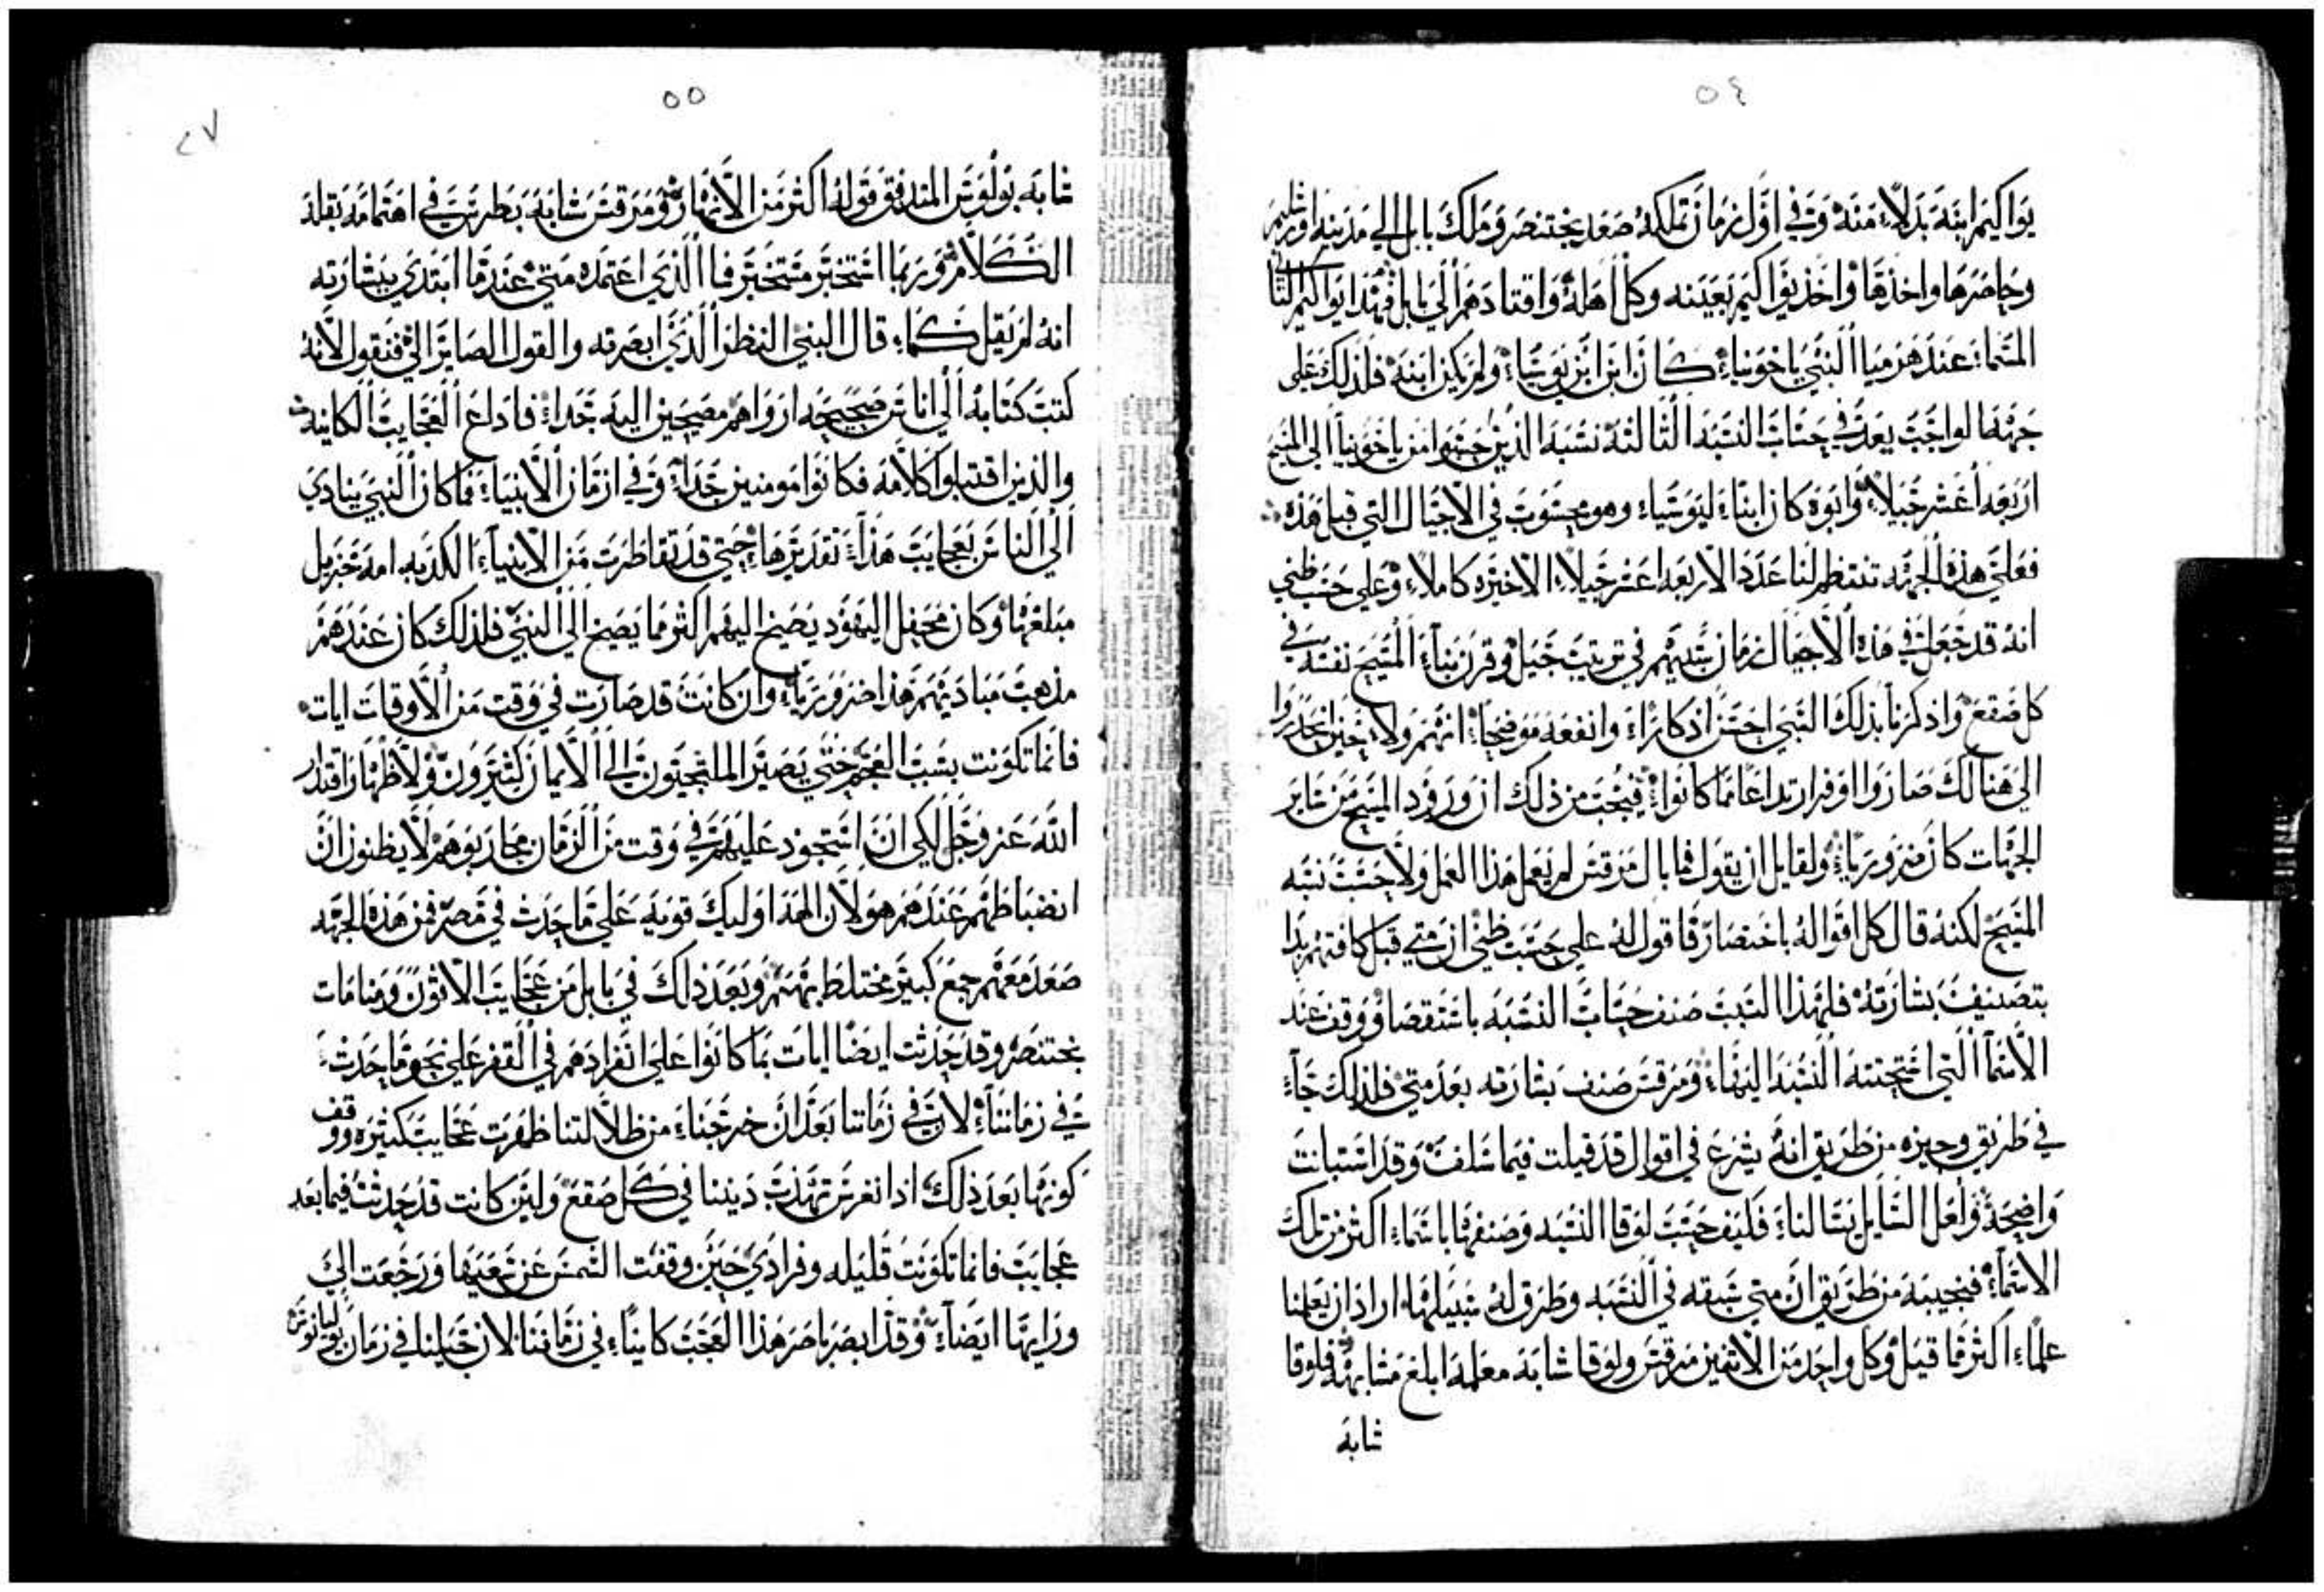 ٥٤
يواكيم ابنه بدلاً منه وفي اول زمان تملكه صعد بختنصر وملك بابل الي مدينه اورشليم
وحاصرها واخذها واخذ يواكيم بعينه وكل اهله واقتادهم الي بابل فهذا يواكيم الثاني
المسما عند هرميا النبي ياخونيا كان ابن ابن يوشيا ولم يكن ابنه فلذلك على
جهة الواجب يعد في حساب النسبه الثالثه نسبة الذين حسبوا من ياخونيا الي المسيح
اربعه عشر جيلاً وابوه كان ابناء ليوشياء وهو محسوب في الاجيال التي قبل هذه
فعلى هذه الجهه تنتظم لنا عدد الاربعه عشر جيلاً الاخيره كاملاً وعلى حسب ظني
انه قد جعل في هذه الاجيال زمان سبيهم في ترتيب جيل وقرن بناء المسيح نفسه في
كل صقع واذكرنا بذلك السبي احسن اذكاراً وانفعه موضحاً انهم ولا حين انحدروا
الى هنالك صاروا اوفر ارتداعا مما كانوا فيجب من ذلك ان ورود المسيح من ساير
الجهات كان ضرورياً ولقايل ان يقول فما بال مرقس لم يعمل هذا العمل ولا حسب نسبه
المسيح لكنه قال كل اقواله باختصار فاقول له على حسب ظني ان متي قبل كافتهم بدا
بتصنيف بشارته فلهذا السبب صنف حساب النسبه باستقصا ووقف عند
الاسما التي احتجنته النسبه اليها ومرقس صنف بشارته بعد متي فلذلك جاء
في طريق وجيزه من طريق انه يشرع في اقوال قد قيلت فيما سلف وقد استبانت
واضحة ولعل السايل يسالنا فكيف حسب لوقا النسبه وصنفها باسماء اكثر من تلك
الاسماء فنجيبه من طريق ان متي سبقه في النسبه وطرق له سبيلها اراد ان يعلمنا
علماً اكثر مما قيل وكل واحد من الاثنين مرقس ولوقا شابه معلمه ابلغ مشابهة فلوقا
شابه
٥٥
٢٧
شابه بولوس المتدفق قوله اكثر من الانهار ومرقس شابه بطرس في اهتمامه بقلة
الكلام وربما استخبر مستخبر فما الذي اعتمده متي عند ما ابتدي ببشارته
انه لم يقل كما قال النبي النظر الذي ابصرته والقول الصاير الي فنقول لانه
كتب كتابه الي اناس صحيحه ارواهم مصيخين اليه جداً فاذاع العجايب الكاينه
والذين اقتبلوا كلامه فكانوا مومنين جداً وفي ازمان الانبياء فما كان النبي ينادي
الي الناس بعجايب هذا تقديرها حتي قد تقاطرت من الانبياء الكدبه امه جزيل
مبلغها وكان محفل اليهود يصيخ اليهم اكثر مما يصيخ الي النبي فلذلك كان عندهم
مذهب مباديهم هذا ضرورياً وان كانت قد صارت في وقت من الاوقات ايات
فانما تكونت بسبب العجم حتي يصير الملتجيون الي الايمان كثيرون ولاظهار اقتدار
الله عز وجل لكي ان استحوذ عليهم في وقت من الزمان محاربوهم لا يظنون ان
انضباطهم عندهم هو لان الهه اوليك قويه على ما حدث في مصر فمن هذه الجهه
صعد معهم جمع كبير مختلط بهم وبعد ذلك في بابل من عجايب الاتون ومنامات
بختنصر وقد حدثت ايضاً ايات بما كانوا على انفرادهم في القفر على نحو ما حدث
في زماننا لان في زماننا بعد ان خرجنا من ظلالتنا ظهرت عجايب كثيره ووقف
كونها بعد ذلك اذا انغرس تهذب ديننا في كل صقع ولين كانت قد حدثت فيما بعد
عجايب فانما تكونت قليله وفرادي حين وقفت الشمس عن سعيها ورجعت الي
ورايها ايضاً وقد ابصر باصر هذا العجب كايناً في زماننا لان جيلنا في زمان يوليانوس